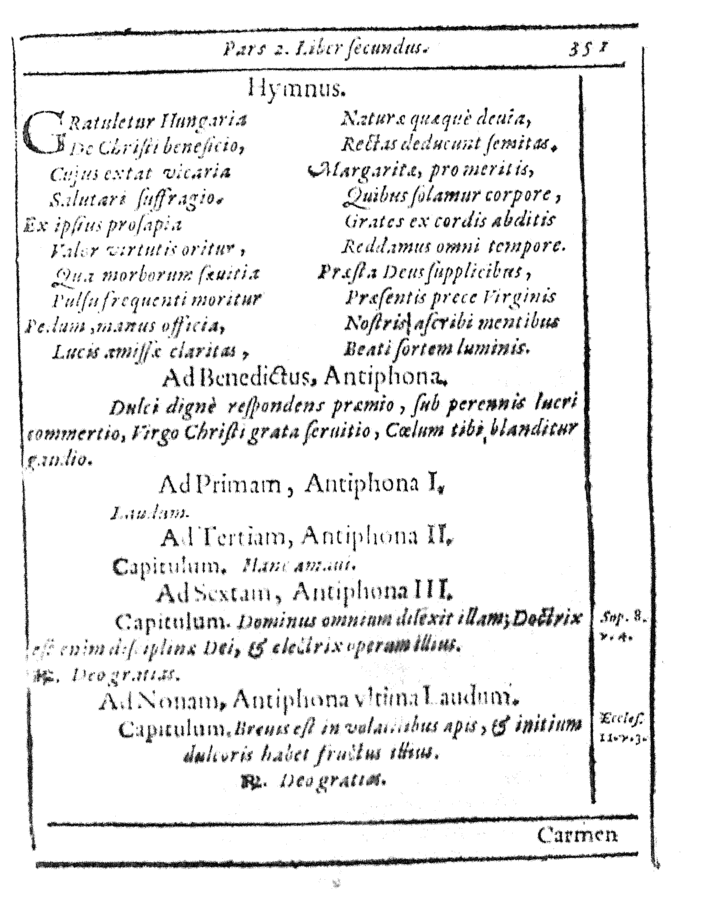 Pars 2. Liber ſecundus. 351
Hymnus.
GRatuletur Hungaria
De Chriſti beneficio,
Cujus extat vicaria
Salutari ſuffragio.
Ex ipſius proſapia
Valor virtutis oritur,
Qua morborum ſævitia
Pulſu frequenti moritur
Pedum, manus officia,
Lucis amiſſæ claritas,
Naturæ quæquè devia,
Rectas deducunt ſemitas.
Margaritæ, pro meritis,
Quibus ſolamur corpore,
Grates ex cordis abditis
Reddamus omni tempore.
Præſta Deus ſupplicibus,
Præſentis prece Virginis
Noſtris aſcribi mentibus
Beati ſortem luminis.
Ad Benedictus, Antiphona.
Dulci dignè reſpondens præmio, ſub perennis lucri
commertio, Virgo Chriſti grata ſervitio, Cœlum tibi blanditur
gaudio.
Ad Primam, Antiphona I.
Laudum.
Ad Tertiam, Antiphona II.
Capitulum. Hanc amaui.
Ad Sextam, Antiphona III.
Capitulum. Dominus omnium dilexit illam; Doctrix
eſt enim diſciplinæ Dei, & electrix operum illius.
℟. Deo gratias.
Sap. 8.
v. 4.
Ad Nonam, Antiphona vltima Laudum.
Capitulum. Breuis eſt in volatilibus apis, & initium
dulcoris habet fructus illius.
℟. Deo gratias.
Eccleſ.
11. v. 3.
Carmen